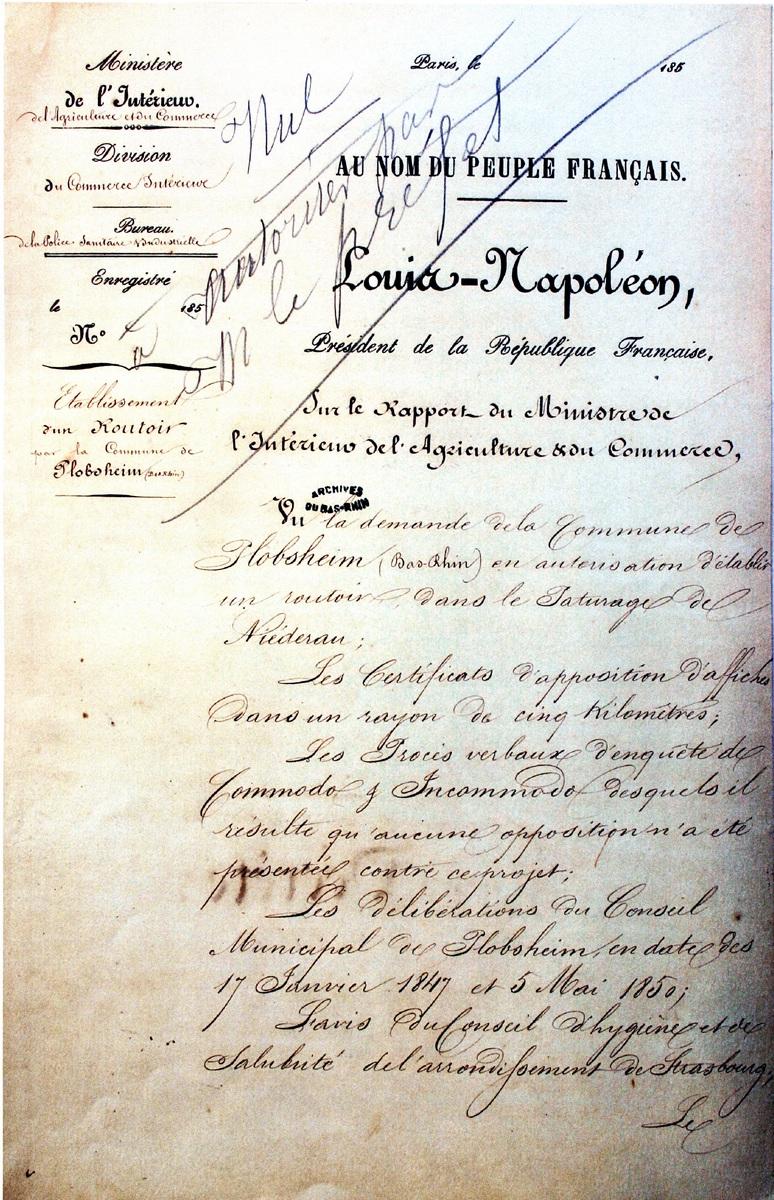 Ministère
de l'Intérieur,
de l'Agriculture et du Commerce
Division
du Commerce Intérieur
Bureau
de la Police Sanitaire & Industrielle
Enregistré
le 185
N.º
Etablissement
d'un Routoir
par la Commune de
Plobsheim (Bas Rhin)
Paris, le 185
Nul
autoriser par
M le préfet
AU NOM DU PEUPLE FRANÇAIS.
Louis-Napoléon,
Président de la République Française,
Sur le Rapport du Ministre de
l'Intérieur de l'Agriculture & du Commerce,
ARCHIVES
DU BAS-RHIN
Vu la demande de la Commune de
Plobsheim (Bas-Rhin) en autorisation d'établir
un routoir, dans le Paturage de
Niéderau;
Les Certificats d'apposition d'affiches
dans un rayon de cinq Kilomètres;
Les Procès verbaux d'enquête de
Commodo & Incommodo desquels il
résulte qu'aucune opposition n'a été
présentée contre ce projet;
Les délibérations du Conseil
Municipal de Plobsheim, en date des
17 Janvier 1847 et 5 Mai 1850;
L'avis du Conseil d'hygiène et de
Salubrité de l'arrondissement de Strasbourg,
Le